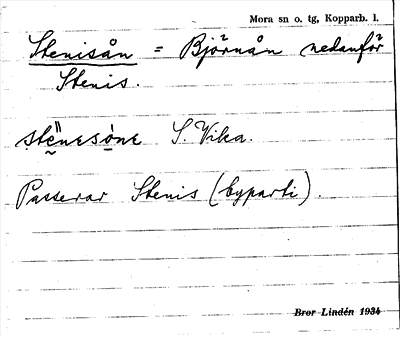 Mora sn o. tg, Kopparb. l.
Stenisån = Björnån nedanför
Stenis.
S. Vika.
Passerar Stenis (byparti).
Bror Lindén 1934